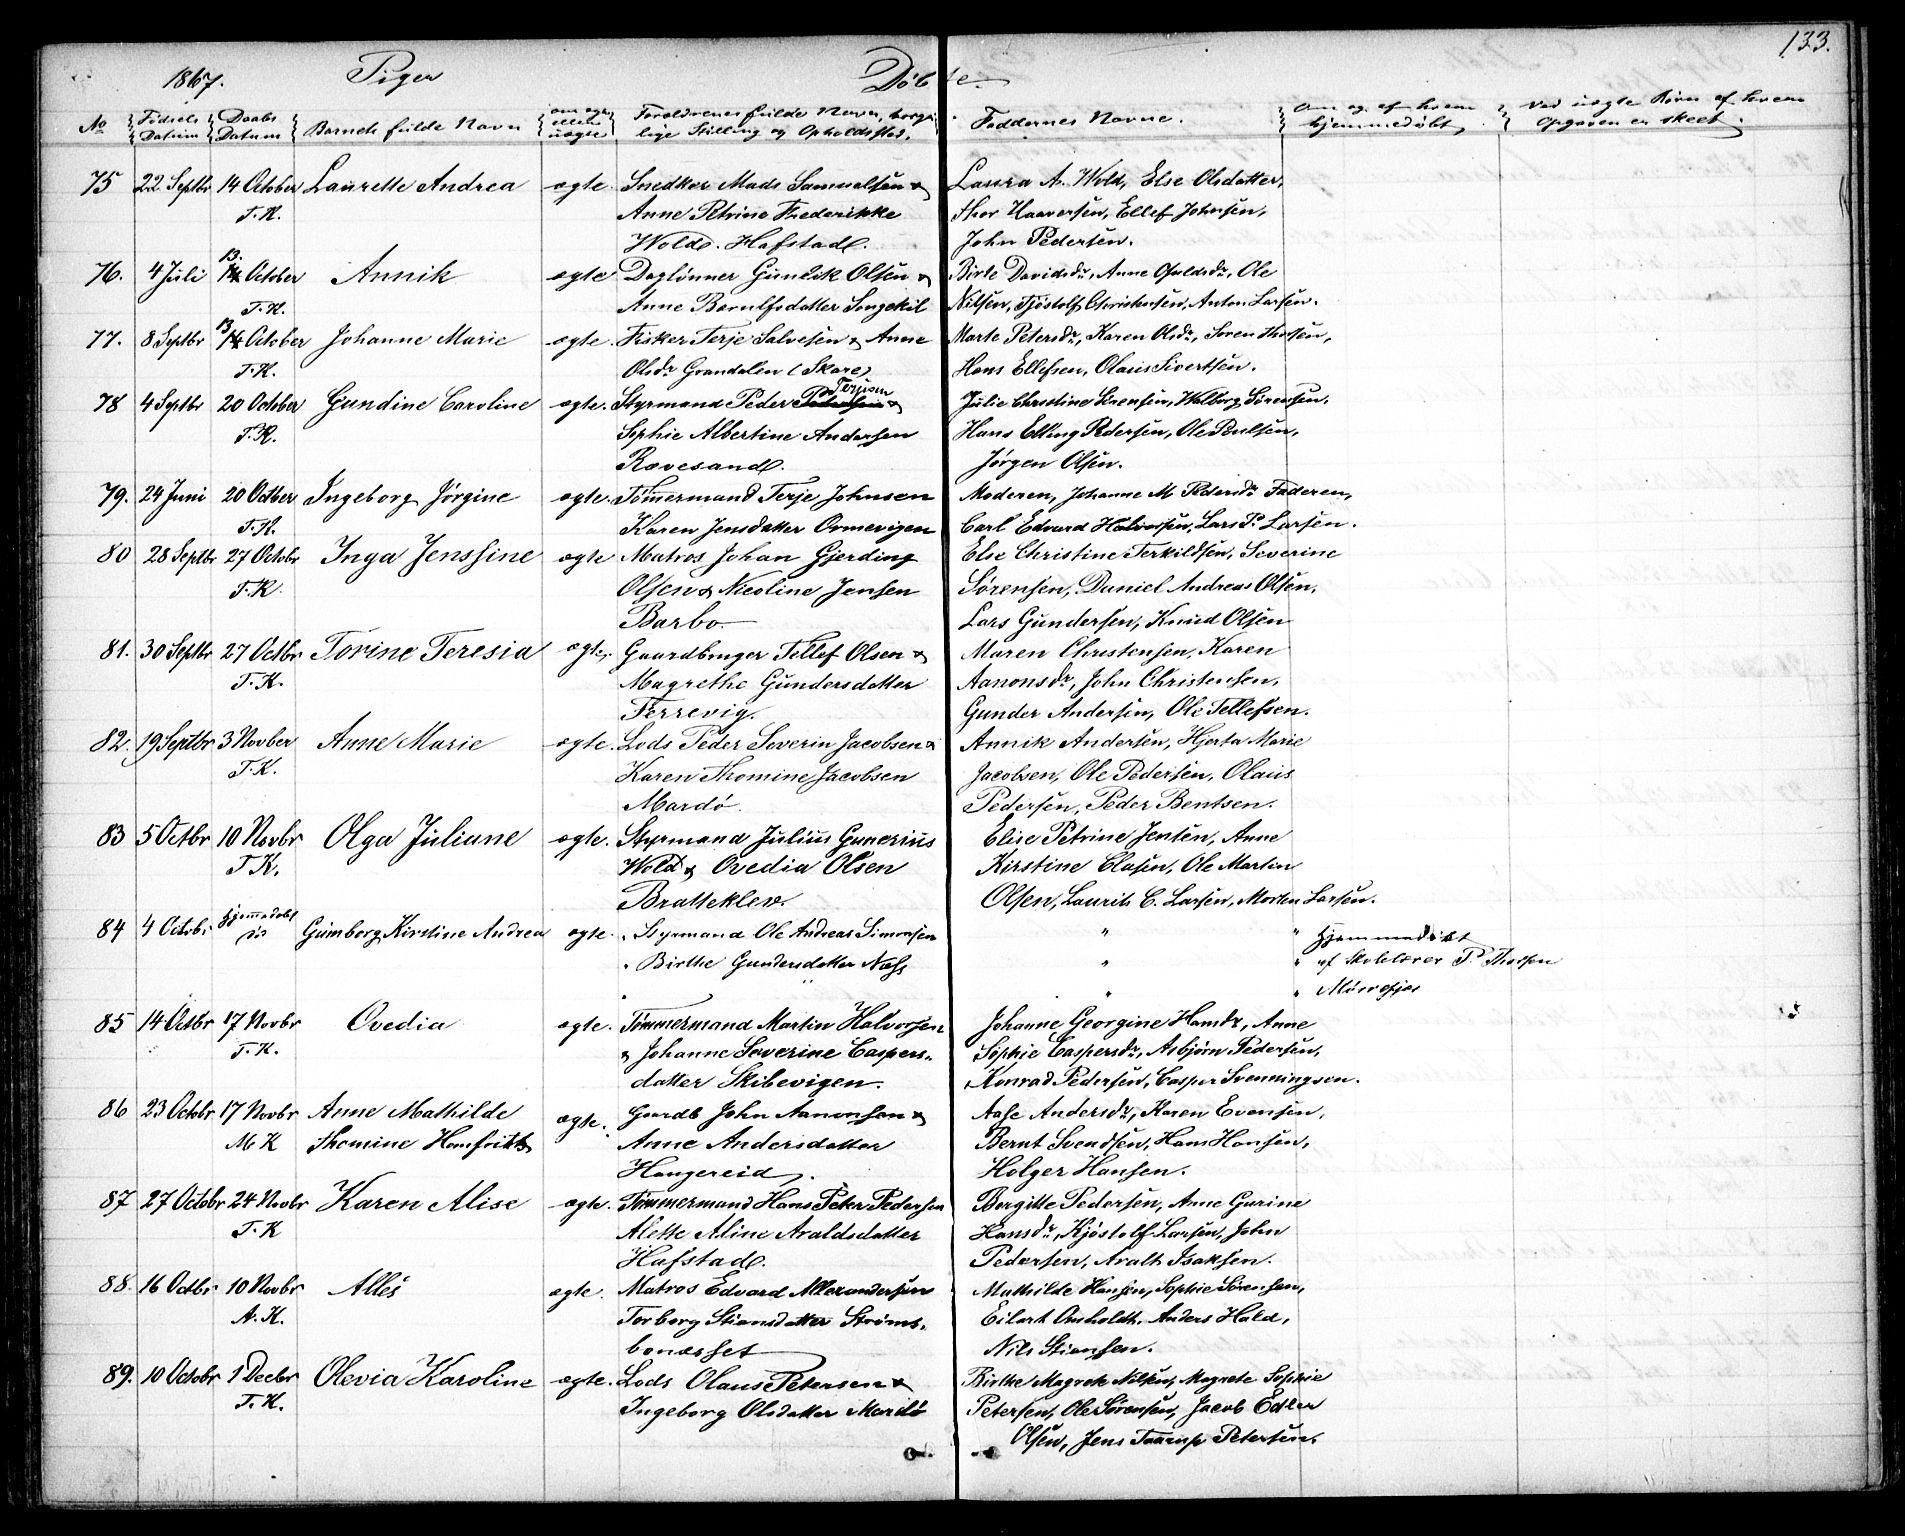 133.
1867. Piger Døbte.
No Fødsels Datum Daabs Datum Barnets fulde Navn om ægte eller uægte Forældrenes fulde Navn, borger-lige Stilling og Opholdssted. Faddernes Navne. Om og af hvem hjemmedøbt Ved uægte Børn af hvem Opgaven er skeet.
75 22 Septbr 14 October Laurette Andrea ægte. Snedker Mads Samuelsen & Laura A. Wold, Else Olsdatter,
T.K. Anne Petrine Frederikke Thor Haaversen, Ellef Johnsen,
Wold. Hafstad. John Pedersen.
76. 4 Juli 13. October Annik ægte Daglønner Gunlik Olsen & Birte Davidsdr, Anne Osuldsdr, Ole
T.K. Anne Bernlfsdatter Songekil Nilsen, Tjøstolf Christensen, Anton Larsen.
77. 8 Septbr 13 October Johanne Marie ægte. Fisker Terje Salvesen & Anne Marte Petersdr, Karen Olsdr, Søren
T.K. Olsdr Grandalen (Skare) Hans Ellefsen, Olaus Sivertsen.
78 4 Septbr 20 October Gundine Caroline ægte. Styrmand Peder Terjesen & Julie Christine Sørensen, Walborg Sørensen,
T.K. Sophie Albertine Andersen Hans Elling Pedersen, Ole Poulsen,
Rævesand. Jørgen Olsen.
79. 24 Juni 20 Octber Ingeborg Jørgine ægte. Tømmermand Terje Johnsen Moderen, Johanne M Pedersdr Faderen,
T.K. Karen Jensdatter Ormevigen Carl Edvard Halvorsen, Lars P. Larsen.
80 28 Septbr 27 Octobr Inga Jenssine ægte Matros Johan Gjerding Else Christine Terkildsen, Severine
T.K. Olsen & Nicoline Jensen Sørensen, Daniel Andreas Olsen,
Barbo. Lars Gundersen, Knud Olsen
81. 30 Septbr 27 Octbr Torine Teresia ægte. Gaardbruger Tellef Olsen & Maren Christensen, Karen
T.K. Magrethe Gundersdatter Aanonsdr, John Christensen,
Færrevig. Gunder Andersen, Ole Tellefsen.
82. 19 Septbr 3 Novber Anne Marie ægte. Lods Peder Severin Jacobsen & Annik Andersen, Hjerta Marie
T.K. Karen Thomine Jacobsen Jacobsen, Ole Pedersen, Olaus
Mardø. Pedersen, Peder Bentsen.
83 5 Octbr 10 Novbr Olga Juliane ægte. Styrmand Julius Gunerius Elise Petrine Jensen, Anne
T.K. Wold & Ovedia Olsen Kirstine Clasen, Ole Martin
Bratteklev. Olsen, Laurits C. Larsen, Morten Larsen.
84 4 Octobr hjemmedøbt Gunborg Kirstine Andrea ægte. Styrmand Ole Andreas Simonsen " " Hjemmedøbt
Birthe Gundersdatter Næss " " af Skolelærer P. Thorsen
" "
85 14 Octbr 17 Novbr Ovedia ægte. Tømmermand Martin Halvorsen Johanne Georgine Hansdr, Anne
T.K. & Johanne Severine Caspers- Sophie Caspersdr, Asbjørn Pedersen,
datter Skibevigen. Konrad Pedersen, Casper Svenningsen.
86 23 Octobr 17 Novbr Anne Mathilde ægte. Gaardb John Aanonsen & Aase Andersdr, Karen Evensen,
M K Thomine Anne Andersdatter Bernt Svendsen, Hans Hansen,
Hangereid. Holger Hansen.
87 27 Octobr 24 Novbr Karen Alise ægte. Tømmermand Hans Peter Pedersen Borgitte Pedersen, Anne Gurine
T.K Alette Aline Araldsdatter Hansdr, Kjøstolf Larsen, John
Hafstad. Pedersen, Aralt Isaksen.
88. 16 Octbr 10 Novbr Alles ægte. Matros Edvard Allexandersen Mathilde Hansen, Sophie Sørensen,
A.K. Torborg Stiansdatter Strøms- Eilert Amholdt, Anders Hald,
bonæsset Nils Stiansen.
89. 10 Octobr 1 Decbr Olevia Karoline ægte. Lods Olaus Petersen & Birthe Magrete Nilsen, Magrete Sophie
T.K. Ingeborg Olsdatter Mardø Petersen, Ole Sørensen, Jacob Edler
Olsen, Jens Taarup Petersen.